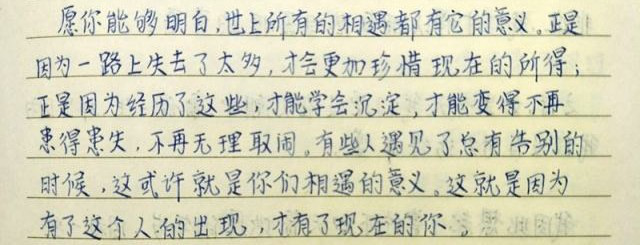 愿你能够明白,世上所有的相遇都有它的意义。正是
因为一路上失去了太多,才会更加珍惜现在的所得;
正是因为经历了这些,才能学会沉淀,才能变得不再
患得患失,不再无理取闹。有些人遇见了总有告别的
时候,这或许就是你们相遇的意义。这就是因为
有了这个人的出现,才有了现在的你。